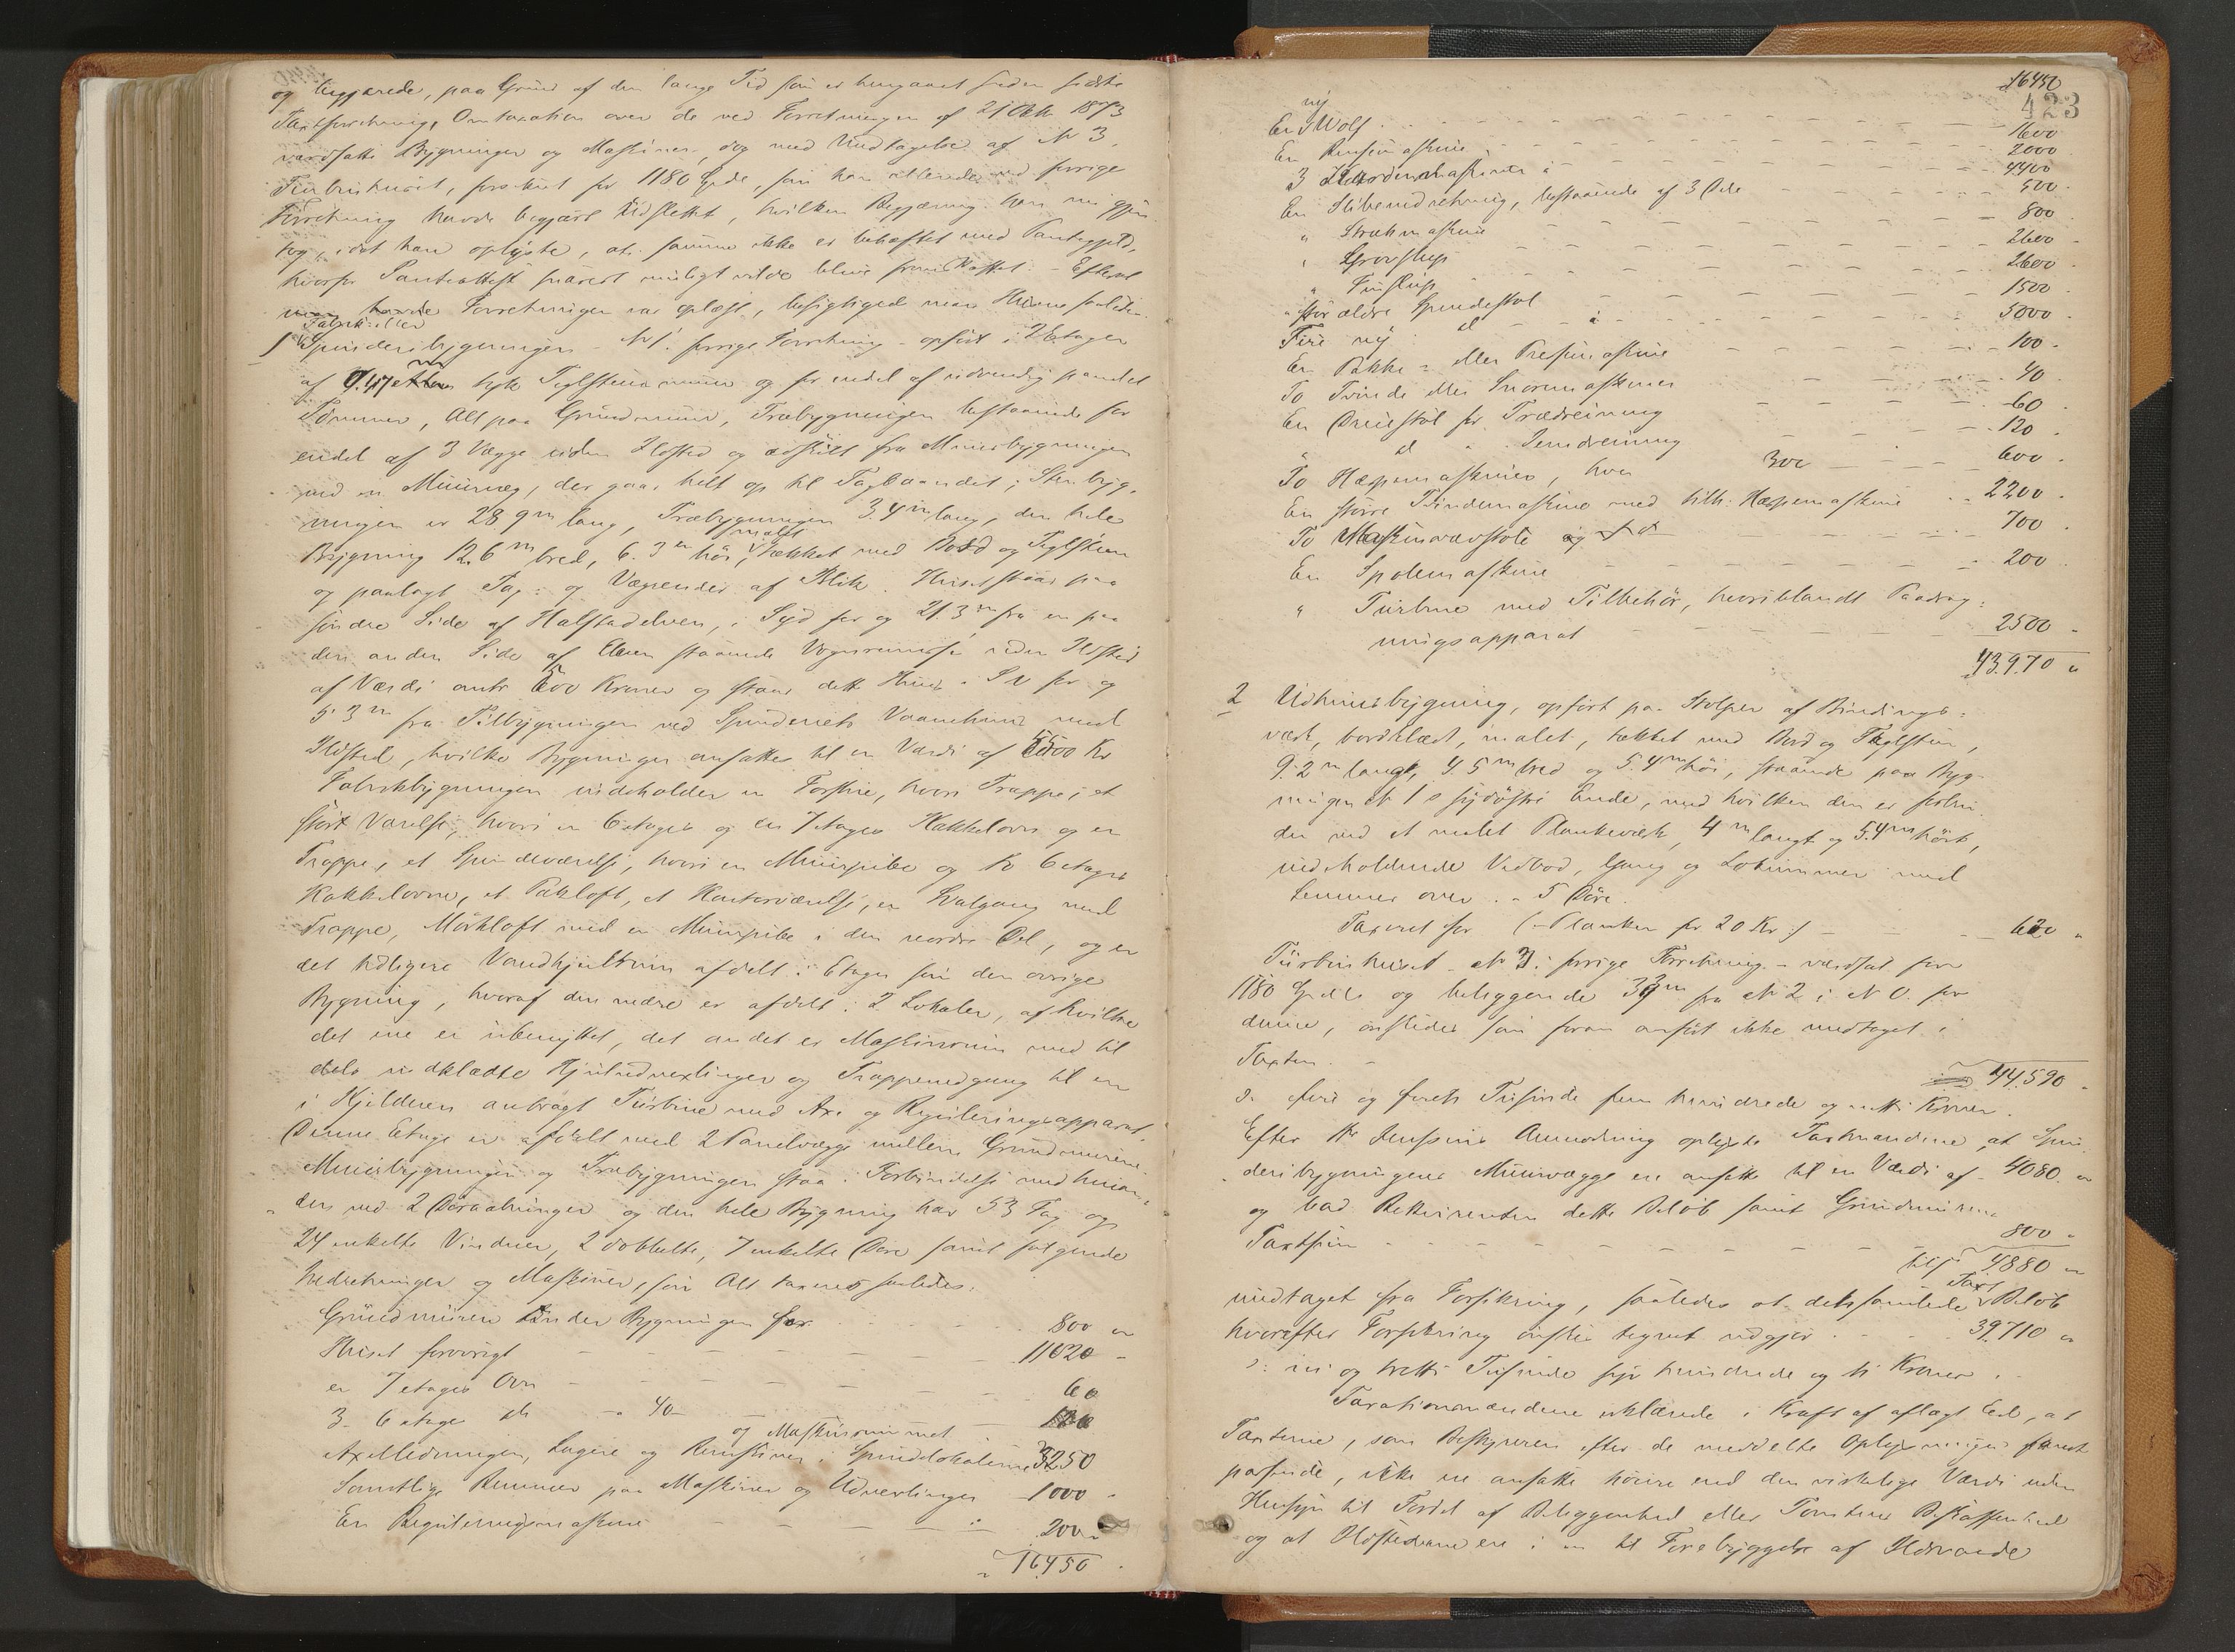 og begjærede, paa Grund af den lange Tid som er hengaaet siden sidste
Taxtforretning, Omtaxation over de ved Forretningen af 21 Okt 1873
værdsatte Bygninger og Maskiner, dog med Undtagelse af N 3,
Turbinhuset, forsikret for 1180 Spde, som han allerede ved forrige
Forretning havde begjært udslettet, hvilken Begjæring han nu gjen-
tog, idet han oplyste, at samme ikke er behæftet med Pantegjeld,
hvorfor Panteattest snarest muligt vilde blive fremskaffet. - Efterat
Forretningen var oplæst, besigtigede man Husene saaledes:
1 Fabrik eller
Spinderibygningen - N 1 i forrige Forretning - opført i 2 Etager
af 0.47 m tyk Teglstensmuur og for endel af udvendig panelet
Tømmer, Alt paa Grundmuur, Træbygningen bestaaende for
endel af 3 Vægge uden Ildsted og adskilt fra Muurbygningen
ved en Muurvæg, der gaar helt op til Tagbaandet; Stenbyg-
ningen er 28.9 m lang, Træbygningen 3.4 m lang, den hele
Bygning 12.6 m bred, 6.3 m höi, malet, tækket med Bord og Teglsteen
og paalagt Tag- og Vægrender af Blik. Huset staar paa
søndre Side af Halstadelven, i Syd for og 21.3 m fra en paa
den anden Side af Elven staaende Vognremisse uden Ildsted
af Værdi omtr Kroner og staar dette Huus i SV for og
5.3 m fra Tilbygningen ved Spinderiets Vaaningshuus med
Ildsted, hvilke Bygninger ansattes til en Værdi af 5500 Kr
Fabrikbygningen indeholder en Forstue, hvori Trappe, et
stort Værelse, hvori en 6 etages og en 7 etages Kakkelovn og en
Trappe, et Spindeværelse, hvori en Muurpibe og to 6 etages
Kakkelovne, et Pakloft, et Kontorværelse, en Svalgang med
Trappe, Mörkloft med en Muurpibe i den nordre Del, og er
det tidligere Vandhjulsrum afdelt i Etager som den øvrige
Bygning, hvoraf den nedre er afdelt i 2 Lokaler, af hvilke
det ene er ubenyttet, det andet er Maskinrum med til
dels indklædte Hjuludvexlinger og Trappenedgang til en
i Kjelderen anbragt Turbine med Axe og Reguleringsapparat.
Denne Etage er afdelt med 2 Panelvægge mellem Grundmurene.
Muurbygningen og Træbygningen staa i Forbindelse med hinan-
den ved 2 Döraabninger og den hele Bygning har 53 Fag og
24 enkelte Vinduer, 2 dobbelte, 7 enkelte Döre samt fölgende
Indretninger og Maskiner, som Alt taxeres saaledes:
Grundmuren under Bygningen for 800 "
Huset forövrigt 11020 -
en 7 etages Ovn 60
3 6 etages do a 40 120
Axelledninger, Lagere og Remskiver i Spindelokalerne og Maskinrummet 3250
Samtlige Remmer paa Maskiner og Udvexlinger 1000 -
En Reguleringsmaskine 200 "
16450 -
16450
423
En ny Wolf 1600
En Rensemaskine 2000
3 Kardemaskiner 4400
En Slibeindretning, bestaaende af 3 Dele 500
" Strækmaskine 800
" Grovflyer 2600 -
" Finflyer 2600 -
" större ældre Spindestol 1500 -
Fire ny do 5000 -
En Pakke- eller Pressemaskine 100 -
To Tvinde eller Snoremaskiner 40 -
En Dreiestol for Trædreining 60
" do " Jerndreining 120 -
To Hæspemaskiner, hver 300 600 -
En större Tvindemaskine med tilh. Hæspemaskine 2200 -
To Maskinvævstole 700 -
En Spolemaskine 200
" Turbine med Tilbehör, hvoriblandt Paadrag-
ningsapparat 2500 -
43970 "
2 Udhuusbygning, opfört paa Stolper af Bindings-
værk, bordklædt, malet, tækket med Bord og Teglsteen,
9.2 m lang, 4.5 m bred og 5.4 m höi, staaende paa Byg-
ningen N 1's sydöstre Ende, med hvilken den er forbun-
den ved et malet Plankeværk, 4 m langt og 5.4 m höit,
indeholdende Vedbod, Gang og Lokummer med
Lemmer over. 5 Döre.
Taxeret for (- Planken for 20 Kr :) 620 "
Turbinhuset - N 3 i forrige Forretning - værdsat for
1180 Spd og beliggende m fra N 2 i N O for
denne, önskedes som foran anfört ikke medtaget i
Taxten. -
44.590 -
ɔ: fire og förti Tusinde fem hundrede og nitti Kroner.
Efter Hr Jenssens Anmodning oplyste Taxtmændene, at Spin-
deribygningens Muurvægge ere ansatte til en Værdi af 4080 "
og bad Rekvirenten dette Belöb samt Grundmurens
Taxtsum 800 -
tils. 4880 "
undtaget fra Forsikring, saaledes at det samlede Taxt Belöb
hvorefter Forsikring önskes tegnet udgjör 39.710 "
ɔ: ni og tretti Tusinde syv hundrede og ti Kroner.
Taxationsmændene erklærede i Kraft af aflagt Eed, at
Taxterne, som Bestyreren efter de meddelte Oplysninger fandt
passende, ikke ere ansatte höiere end den virkelige Værdi uden
Hensyn til Fordel af Beliggenhed eller Tomtens Beskaffenhed
og at Ildstederne ere i en til Forebyggelse af Ildsvaade